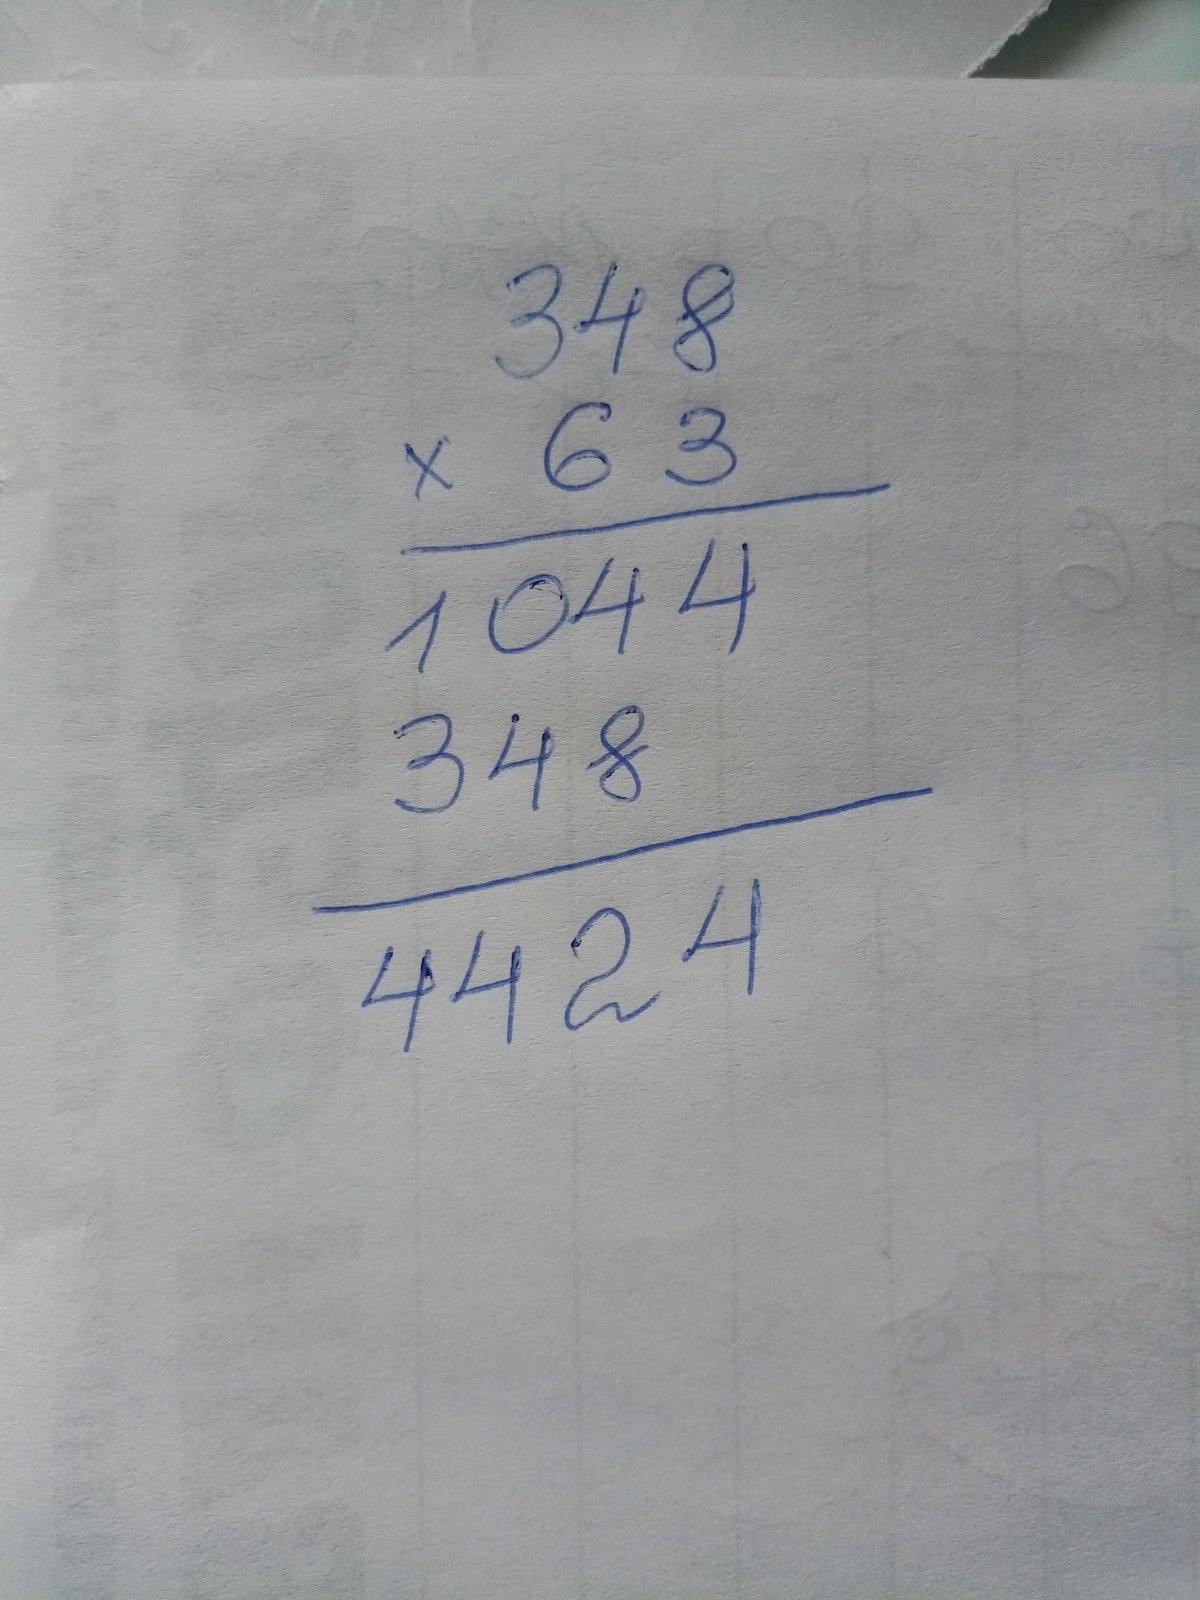 348
x 63
1044
348
4424